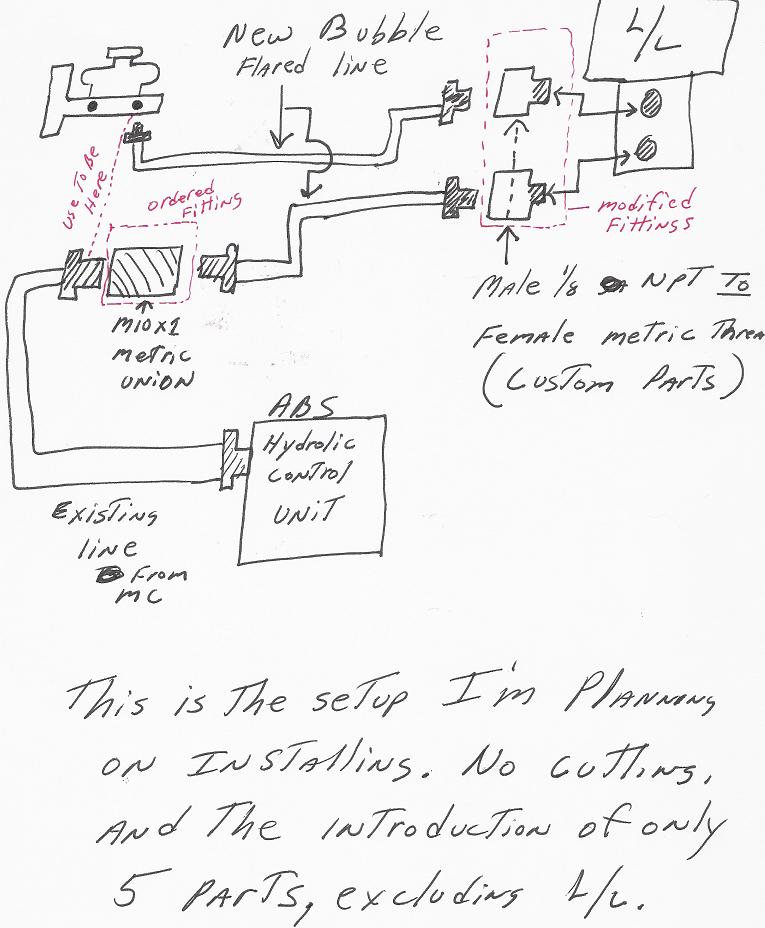 New Bubble
Flared line
L/L
Use To Be
Here
ordered
Fitting
modified
Fittings
M10x1
metric
UNION
Male 1/8 NPT To
Female metric Threa
(Custom Parts)
ABS
Hydrolic
Control
UNIT
Existing
line
From
MC
This is The setup I'm Planning
on Installing. No cutting,
And The introduction of only
5 Parts, excluding L/L.